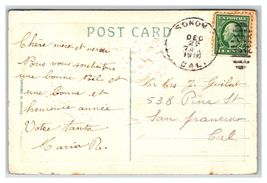 POST CARD
SONOMA
DEC
21
CAL.
Chère nièce et neveu
Nous vous souhaitons
une bonne Noël et
une bonne et
heureuse année
Votre tante
Maria R.
Mr Mrs J. Guilbot
538 Pine St
San francisco
Cal